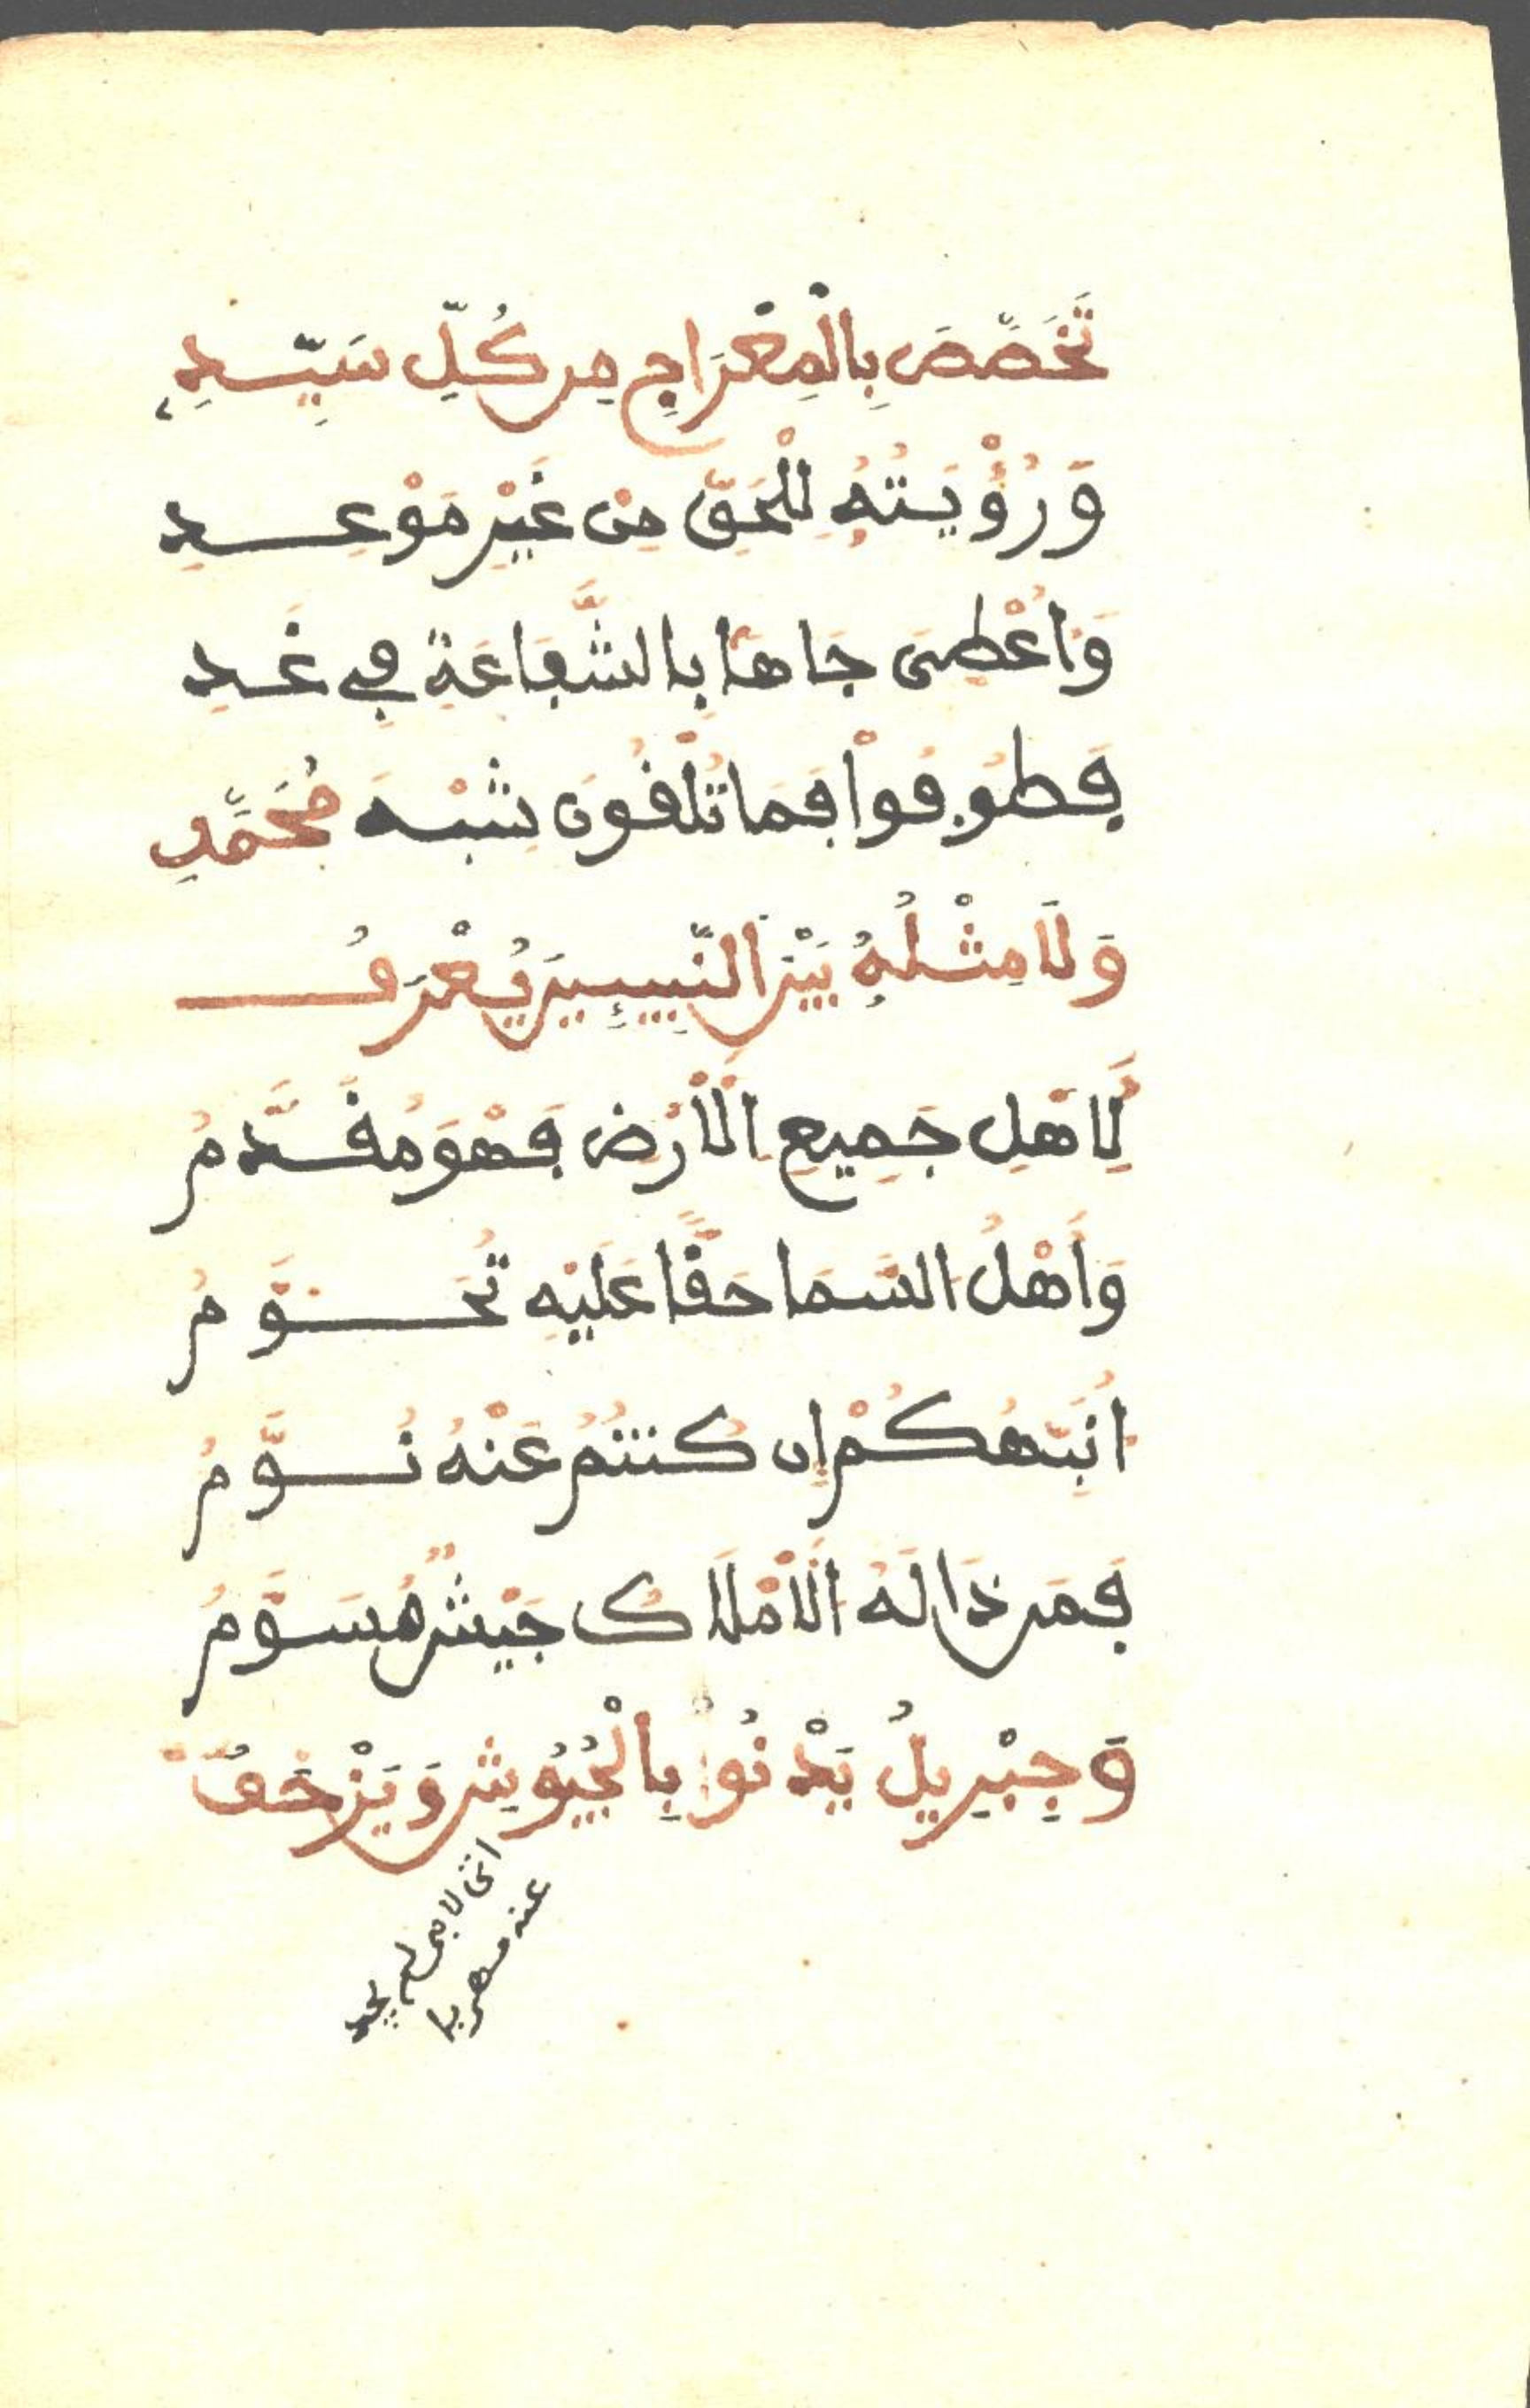 تَخَصَّصَ بِالْمِعْرَاجِ مِن كُلِّ سَيِّدِ
وَرُؤْيَتُهُ لِلْحَقِّ مِنْ غَيْرِ مَوْعِدِ
وَأُعْطِىَ جَاهًا بِالشَّفَاعَةِ فِي غَدِ
فَطُوفُواْ فَمَا تَلْقَوْنَ شِبْهَ مُحَمَّدِ
وَلَا مِثْلُهُ بَيْنَ النَّبِيئِينَ يُعْرَفُ
لِأَهْلِ جَمِيعِ الْأَرْضِ فَهْوَ مُقَدَّمُ
وَأَهْلُ السَّمَا حَقًّا عَلَيْهِ تُحَوَّمُ
أُنَبِّهُكُمْ إِن كُنتُمُ عَنْهُ نُوَّمُ
فَمَن ذَا لَهُ الْأَمْلَاكُ جَيْشٌ مُسَوَّمُ
وَجِبْرِيلُ يَدْنُواْ بِالْجُيُوشِ وَيَزْحَفُ
اتى لا جى لم يجد
عنه مهربا